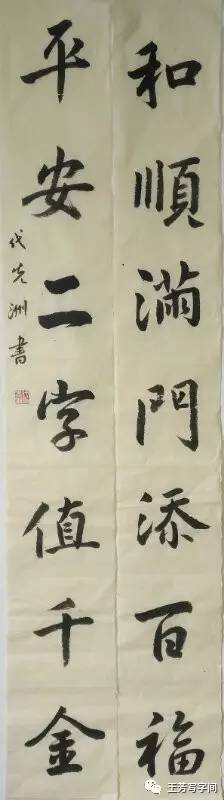 和順滿門添百福
平安二字值千金
代先洲書
王芳写字间